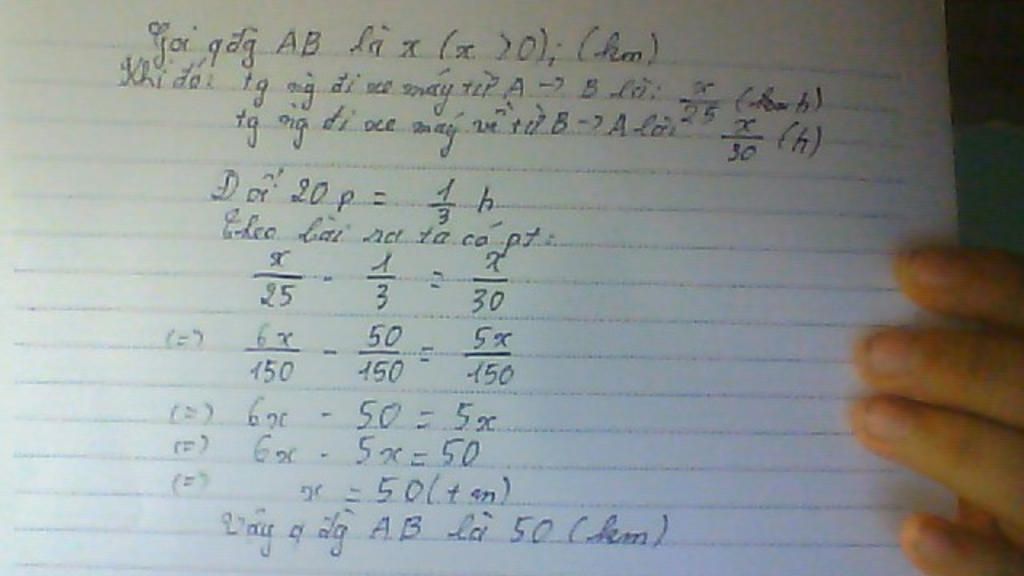 Gọi qđg AB là x (x > 0); (km)
Khi đó: tg ng đi xe máy từ A -> B là: x/25 (km h)
tg ng đi xe máy về từ B -> A là: x/30 (h)
Đổi 20 p = 1/3 h
Theo bài ra ta có pt:
x/25 - 1/3 = x/30
(=) 6x/150 - 50/150 = 5x/150
(=) 6x - 50 = 5x
(=) 6x - 5x = 50
(=) x = 50 (t m)
Vậy q đg AB là 50 (km)